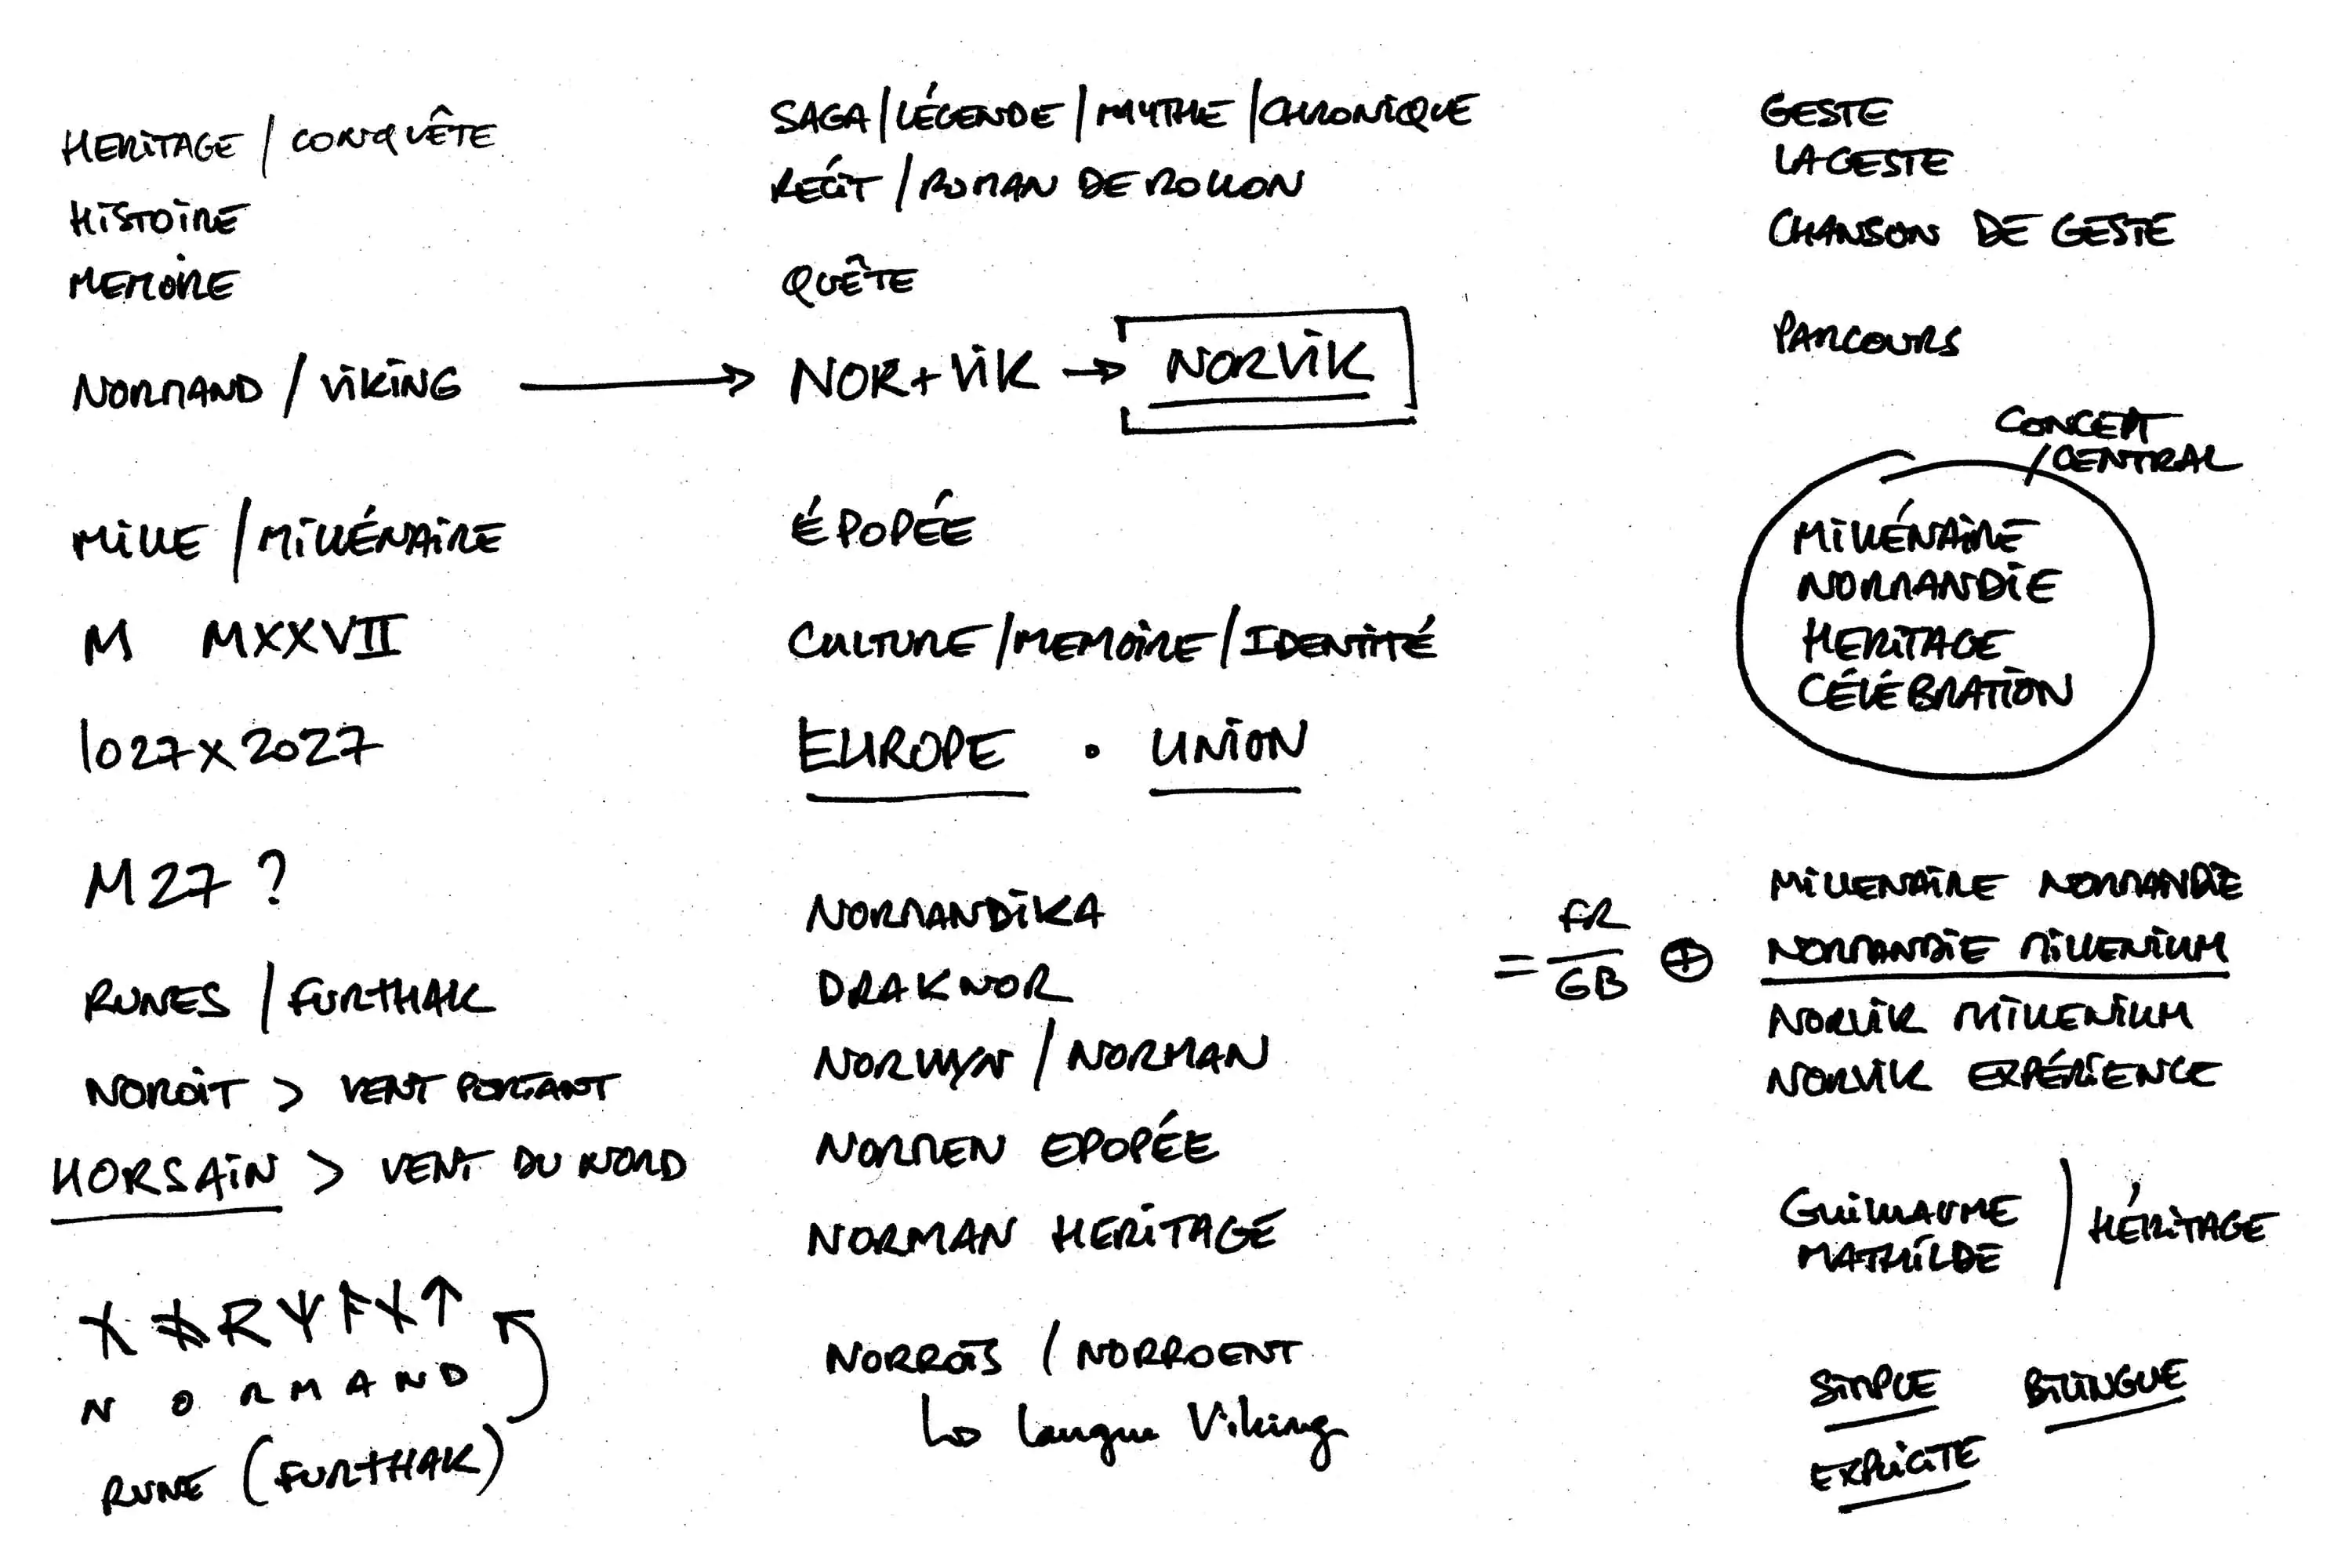 HERITAGE / CONQUÊTE
HISTOIRE
MEMOIRE
NORMAND / VIKING
MILLE / MILLÉNAIRE
M MXXVII
1027 x 2027
M27 ?
RUNES / FURTHAK
NOROIT > VENT PORTANT
HORSAIN > VENT DU NORD
ᚾ ᚬ R ᛘ ᚨ ᚾ ↑
N O R M A N D
RUNE (FURTHAK)
SAGA / LÉGENDE / MYTHE / CHRONIQUE
RECIT / ROMAN DE ROLLON
QUÊTE
NOR + VIK → NORVIK
ÉPOPÉE
CULTURE / MEMOIRE / IDENTITÉ
EUROPE . UNION
NORMANDIKA
DRAKNOR
NORWYN / NORMAN
NORREN EPOPÉE
NORMAN HERITAGE
NORROIS / NORROENT
↳ langue Viking
GESTE
LA GESTE
CHANSON DE GESTE
PARCOURS
CONCEPT
CENTRAL
MILLÉNAIRE
NORMANDIE
HERITAGE
CÉLÉBRATION
= FR
GB ⊕
MILLENAIRE NORMANDIE
NORMANDIE MILLENIUM
NORVIK MILLENIUM
NORVIK EXPÉRIENCE
GUILLAUME
MATHILDE / HÉRITAGE
SIMPLE BILINGUE
EXPLICITE